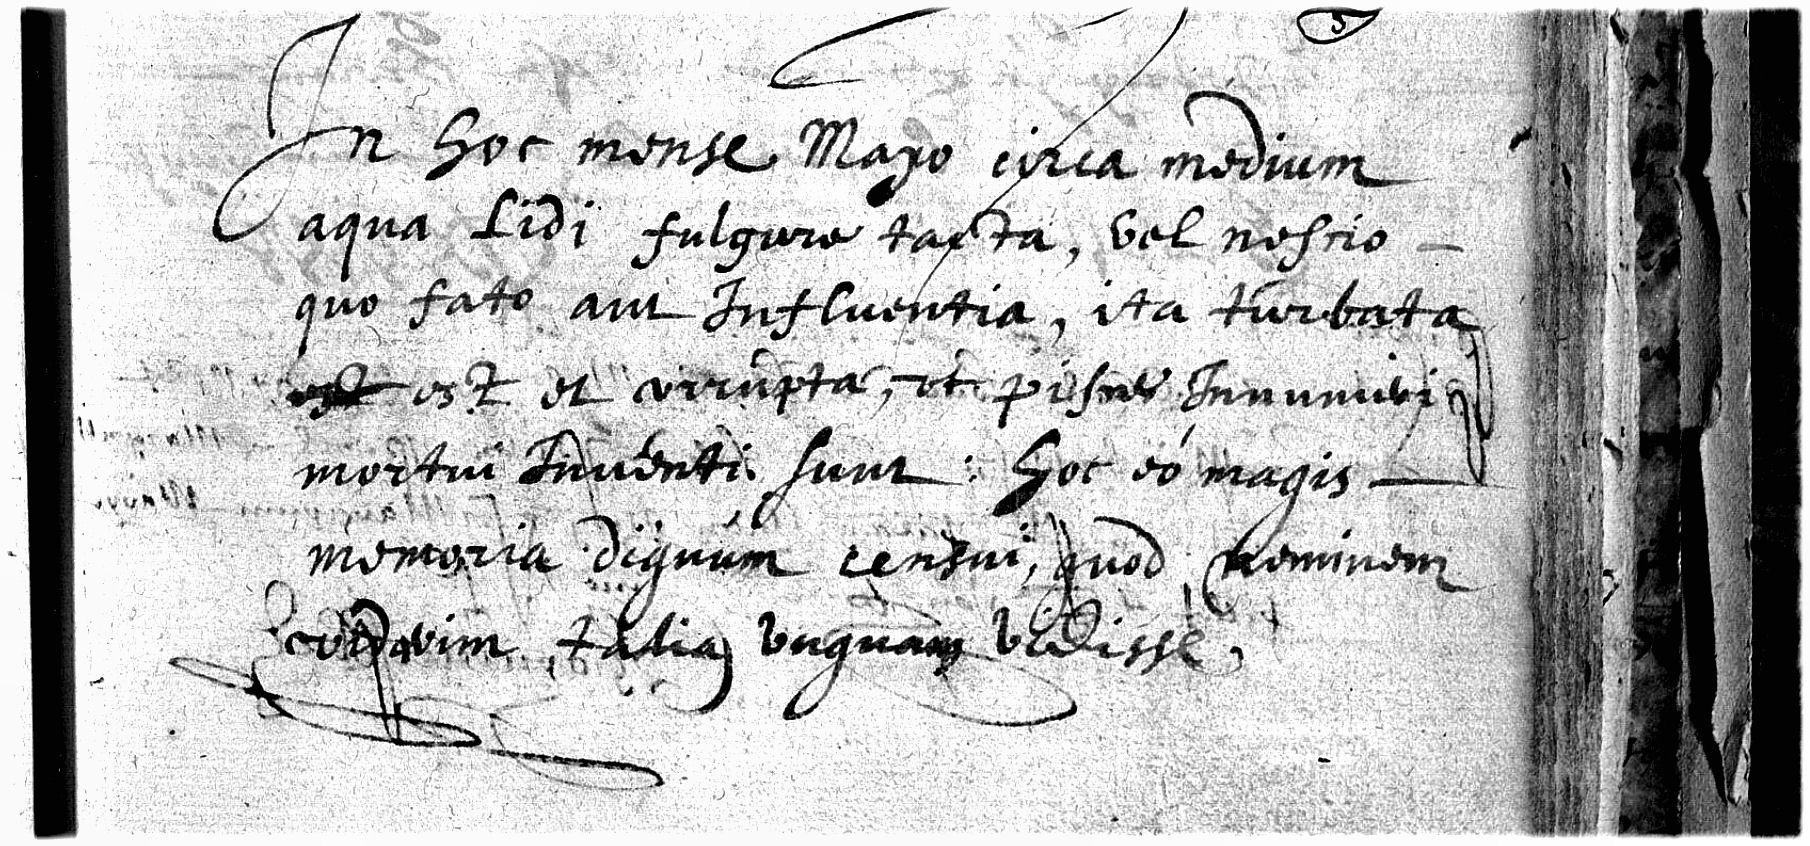 5
In hoc mense Mayo circa medium
aqua Lidi fulgure tacta, vel nescio –
quo fato aut Influentia, ita turbata
est est et corrupta, ut pisces Innumeri
mortui Inuenti sunt: hoc eó magis –
memoria dignúm censui, quod neminem
talia unquam vidisse,